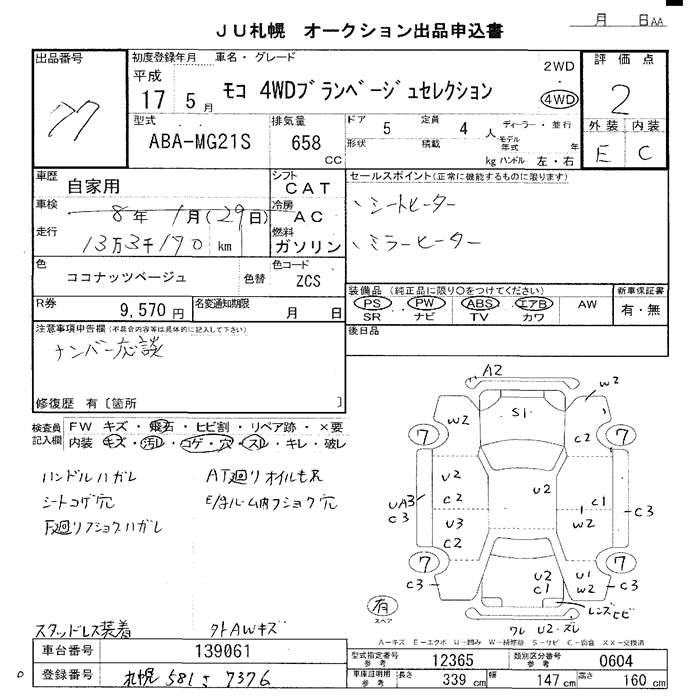 月 日AA
JU札幌 オークション出品申込書
出品番号 初度登録年月 車名・グレード 2WD 評価点
77 平成 17 5月 モコ 4WDブランベージュセレクション 4WD 2
型式 排気量 ドア 5 定員 4人 ディーラー・並行 外装 内装
ABA-MG21S 658 CC 形状 積載 kg モデル年式 年 ハンドル 左・右 E C
車歴 自家用 シフト CAT セールスポイント(正常に機能するものに限ります)
車検 8年 1月(29日) 冷房 AC 、シートヒーター
走行 13万3千170 km 燃料 ガソリン 、ミラーヒーター
色 ココナッツベージュ 色替 色コード ZCS
装備品(純正品に限り○をつけてください) 新車保証書
PS PW ABS エアB AW 有・無
SR ナビ TV カワ
R券 9,570円 名変通知期限 月 日
後日品
注意事項申告欄(不具合内容等は具体的に記入して下さい)
ナンバー応談
修復歴 有〔箇所 〕
検査員記入欄 FW キズ・飛石・ヒビ割・リペア跡・×要
内装 キズ・汚レ・コゲ・穴・スレ・キレ・破レ
ハンドルハガレ AT廻りオイルモレ
シートコゲ穴
F廻りフショクハガレ
スタッドレス装着 外AWキズ
A2
S1
W2 W2
7 7
C2
U2 C2 U2 C1
UA3 C3 U3 C2 W2 C3
7 7
C3 U2 C1 U1 W2 C3
有 スペア レンズヒビ
ワレ U2・ズレ
A―キズ E―エクボ U―凹み W―補修跡 S―サビ C―腐食 XX―交換済
車台番号 139061 型式指定番号 参考 12365 類別区分番号 参考 0604
登録番号 札幌 581 さ 7376 車庫証明用 参考 長さ 339 cm 幅 147 cm 高さ 160 cm